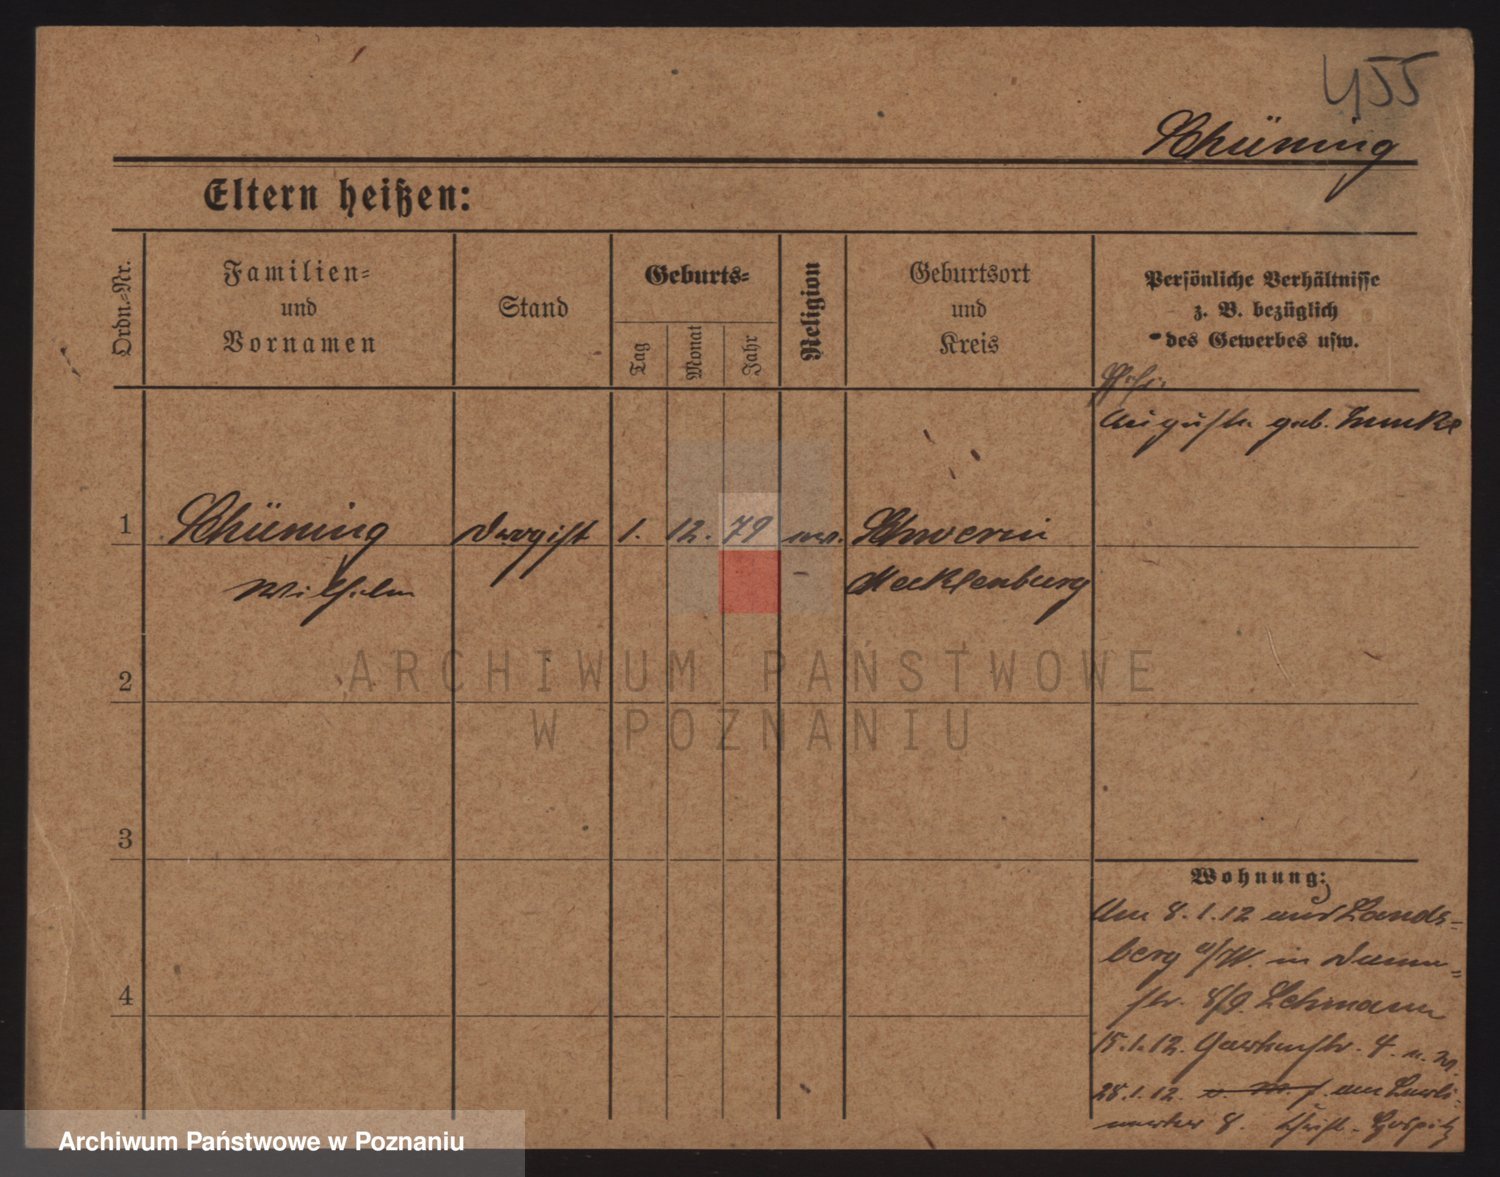 455
Schüning
Eltern heißen:
Ordn.-Nr.
Familien-
und
Vornamen
Stand
Geburts-
Tag
Monat
Jahr
Religion
Geburtsort
und
Kreis
Persönliche Verhältnisse
z. B. bezüglich
des Gewerbes usw.
Auguste geb.
1 Schüning Drogist 1. 12. 79 Schwerin
Wilhelm Mecklenburg
2
3
4
Wohnung:
Am 8.1.12 aus Lands-
berg a/W. in Damm-
str. 8/9. Lehmann
15.1.12. Gartenstr. 4.
28.1.12. am Berli-
nertor 8. Christl. Hospitz
ARCHIWUM PAŃSTWOWE
W POZNANIU
Archiwum Państwowe w Poznaniu